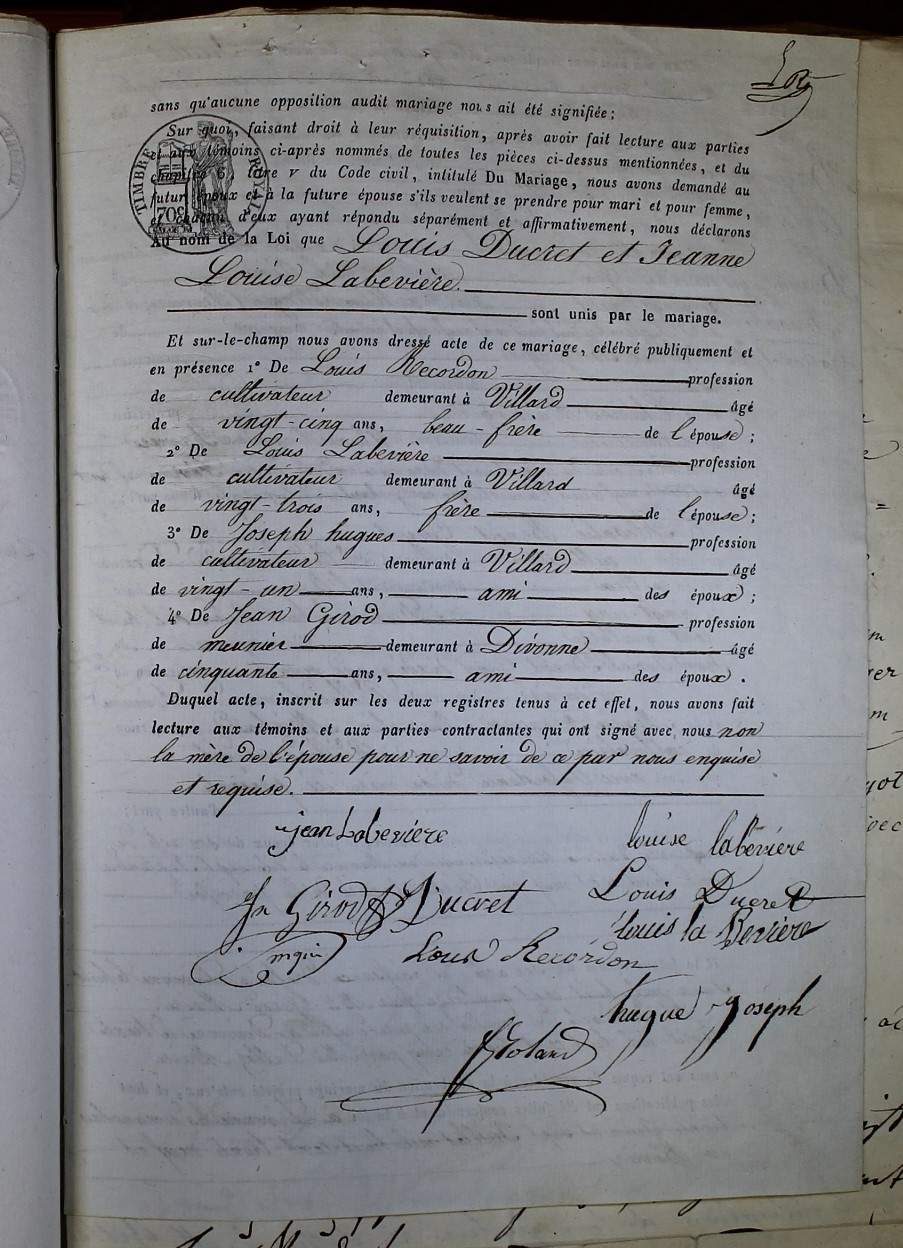 sans qu'aucune opposition audit mariage nous ait été signifiée ;
Sur quoi, faisant droit à leur réquisition, après avoir fait lecture aux parties
et aux témoins ci-après nommés de toutes les pièces ci-dessus mentionnées, et du
chapitre 6, titre V du Code civil, intitulé Du Mariage, nous avons demandé au
futur époux et à la future épouse s'ils veulent se prendre pour mari et pour femme,
et chacun d'eux ayant répondu séparément et affirmativement, nous déclarons
Au nom de la Loi que Louis Ducret et Jeanne
Louise Labevière.
sont unis par le mariage.
Et sur-le-champ nous avons dressé acte de ce mariage, célébré publiquement et
en présence 1º De Louis Recordon profession
de cultivateur demeurant à Villard âgé
de vingt-cinq ans, beau-frère de l'épouse ;
2º De Louis Labevière profession
de cultivateur demeurant à Villard âgé
de vingt-trois ans, frère de l'épouse ;
3º De Joseph hugues profession
de cultivateur demeurant à Villard âgé
de vingt-un ans, ami des époux ;
4º De Jean Girod profession
de meunier demeurant à Divonne âgé
de cinquante ans, ami des époux .
Duquel acte, inscrit sur les deux registres tenus à cet effet, nous avons fait
lecture aux témoins et aux parties contractantes qui ont signé avec nous non
la mère de l'épouse pour ne savoir de ce par nous enquise
et requise.
jean Labevière louise labévière
Jn Girod Ducret Louis Ducret
louis la Bevière
Louis Recordon
hugue joseph
TIMBRE ROYAL
70c